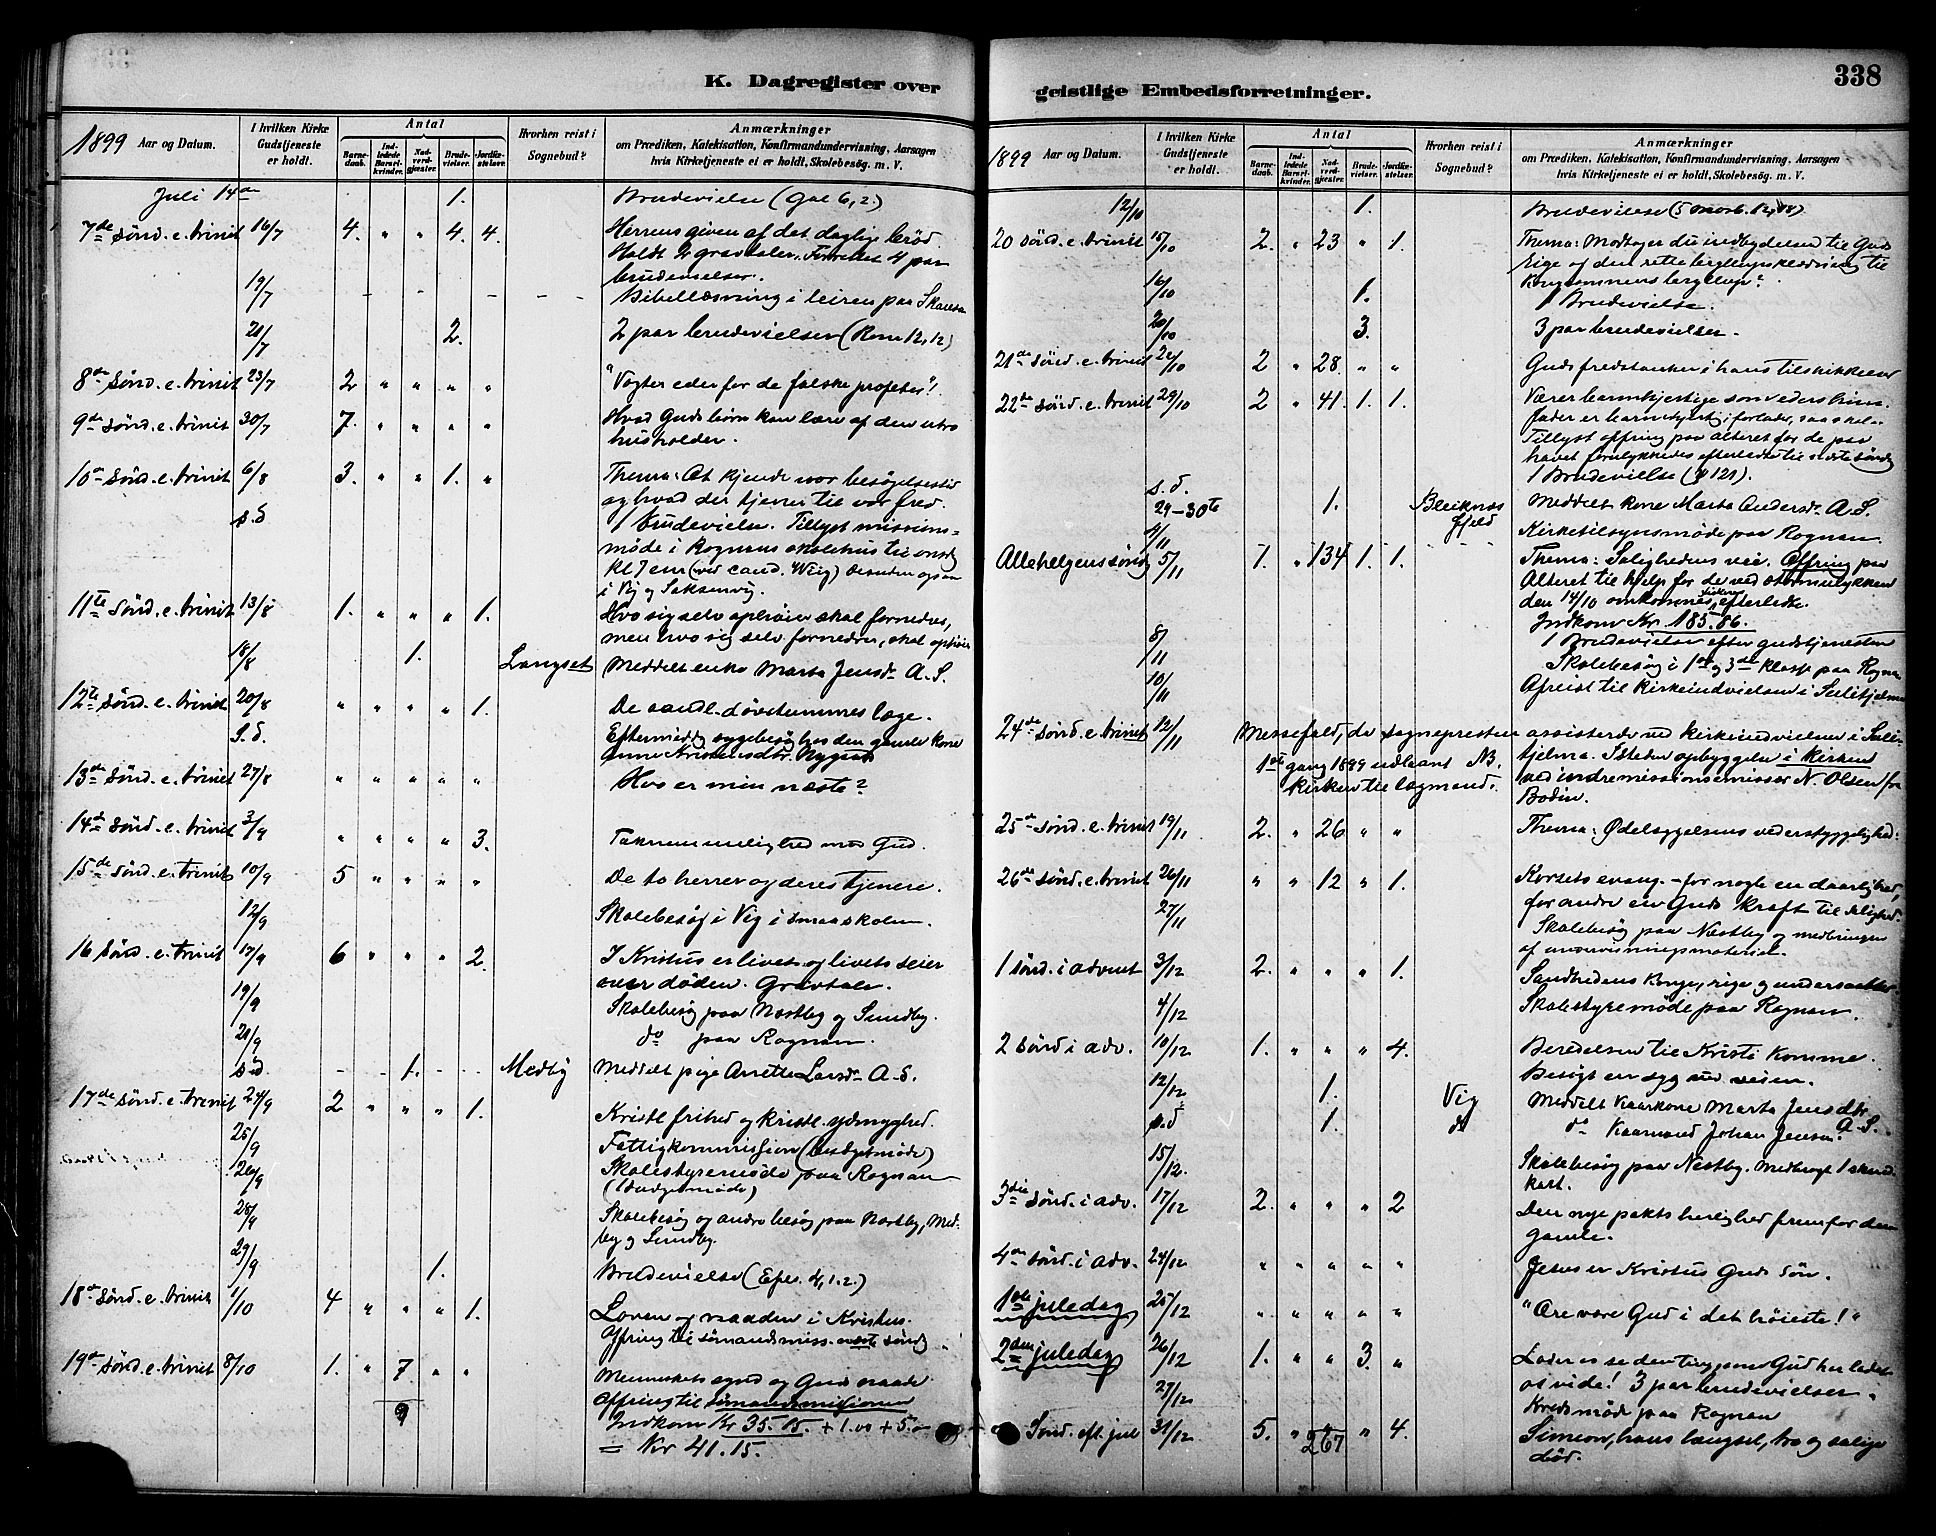 K. Dagregister over
1899 Aar og Datum.
I hvilken Kirke Gudstjeneste er holdt.
Antal
Barne-daab.
Ind-ledede Barsel-kvinder.
Nad-verd-gjæster.
Brude-vielser.
Jordfæ-stelser.
Hvorhen reist i Sognebud?
Anmærkninger
om Prædiken, Katekisation, Konfirmandundervisning, Aarsagen
hvis Kirketjeneste ei er holdt, Skolebesög. m. V.
Juli 14de 1. Brudevielse (Gal 6,2.)
7de sønd. e. trinit 16/7 4. " " 4. 4. Herrens given af det daglige brød.
Holdt 2 gravtaler. Forrettet 4 par
brudevielser.
19/7 - - - - - Bibellæsning i leiren paa
21/7 2. 2 par brudevielser (Rom 12,12)
8de sønd. e. trinit 23/7 2 " " " " "Vogter eder for de falske profeter"!
9de sønd. e. trinit 30/7 7. " " " " Hvad Guds børn kan lære af den utro
husholder.
10de sønd. e. trinit 6/8 3. " " 1. " Thema: At kjende vor besøgelsestid
og hvad der tjener til vor fred.
s.d 1 brudevielse. Tillyst missions-
møde i Rognans skolehus til onsd
Kl 7 em (ved cand. ) desuden ogsaa
i og Saksenvig.
11te sønd. e. trinit 13/8 1. " " " 1. Hvo sig selv ophøier skal fornedres,
men hvo sig selv fornedrer, skal ophøies
18/8 1. Langset Meddelt enke Marta Jensdr A.S.
12te sønd. e. trinit 20/8 " " " " 1. De aandl. døvstummes læge.
S.d. Eftermiddg sygebesøg hos den gamle kone
Anne
13de sønd. e. trinit 27/8 " " " " " Hvo er min næste?
14de sønd. e. trinit 3/9 " " " " 3. Taknemmelighed mod Gud.
15de sønd. e. trinit 10/9 5 " " " " De to herrer og deres tjenere.
12/9 Skolebesøg i Vig i smaaskolen.
16 sønd. e. trinit 17/9 6 " " " 2. I Kristus er livet og livets seier
over døden. Gravtale.
19/9 Skolebesøg paa Nestby og Sundby.
21/9 do paa Rognan.
s.d - - 1. - - Medby Meddelt pige Larsdr A.S.
17de sønd. e. trinit 24/9 2 " " " 1. Kristl frihed og kristl. ydmyghed.
25/9 Fattigkommission (budgetmøde)
26/9 Skolestyremøde paa Rognan
(budgetmøde)
28/9 Skolebesøg og andre besøg paa Nestby, Med-
by og Sundby.
29/9 1. Brudevielse (Efes. 4,1.2.)
18de sønd. e. trinit 1/10 4 " " " 1. Loven og naaden i Kristus.
Ofring til sømandsmiss. næste sønd.
19de sønd. e. trinit 8/10 1. " 7 " " Menneskets synd og Guds naade
Ofring til sømandsmissionen
9 Indkom Kr 35.15. + 1.00 + 5.-
= Kr 41.15.
geistlige Embedsforretninger.
338
1899 Aar og Datum.
I hvilken Kirke Gudstjeneste er holdt.
Antal
Barne-daab.
Ind-ledede Barsel-kvinder.
Nad-verd-gjæster.
Brude-vielser.
Jordfæ-stelser.
Hvorhen reist i Sognebud?
Anmærkninger
om Prædiken, Katekisation, Konfirmandundervisning, Aarsagen
hvis Kirketjeneste ei er holdt, Skolebesög. m. V.
12/10 1. Brudevielse (5 Moseb. 12, )
20 sønd. e. trinit 15/10 2. " 23 " 1. Thema: Modtager du indbydelsen til Guds
Rige og den rette bryllupsklædning til
Kongesønnens bryllup?
16/10 1. 1 Brudevielse.
20/10 3. 3 par brudevielser.
21de sønd. e. trinit 22/10 2 " 28. " " Guds fredstanker i hans tilskikkelser
22de sønd. e. trinit 29/10 2 " 41. 1. 1. Værer barmhjertige som eders himm.
fader er barmhjertig; forlader, saa skal-
Tillyst ofring paa alteret for de paa
havet forulykkedes efterladte til næste sønd
1 Brudevielse (ψ 121).
s.d. 29-30te 1. Bleiknesfjeld Meddelt kone Marta Andersdr A.S.
4/11 - - Kirketilsynsmøde paa Rognan.
Allehelgenssønd 5/11 1. " 134 1. 1. Thema: Salighedens vei. Ofring paa
Alteret til hjelp for de ved stormulykken
den 14/10 omkomnes efterladte.
Indkom Kr. 185.86.
1 Brudevielse efter gudstjenesten
8/11 Skolebesøg i 1ste og 3die klasse paa Rognan
10/11 Afreist til kirkeindvielsen i Sulitjelma
24de sønd. e. trinit 12/11 Messefald, da sognepresten assisterede ved kirkeindvielsen i Suli-
tjelma. Istedet opbyggelse i kirken
1ste gang 1899 udlaant NB. ved indremissionsemissær N. Olsen fra
kirken til lægmand. Bodin.
25de sønd. e. trinit 19/11 2. " 26 " " Thema: Ødelæggelsens vederstyggelighed.
26de sønd. e. trinit 26/11 " " 12 " 1. Korsets evang. - for nogle en daarlighed,
for andre en Guds kraft til salighed.
27/11 Skolebesøg paa Nestby og medbringen
af undervisningsmateriel.
1 sønd. i advent 3/12 2. " " " 1. Sandhedens Konge, rige og undersaatter.
4/12 Skolestyremøde paa Rognan.
2 sønd i adv. 10/12 1. " " " 4. Beredelsen til Kristi komme.
Besøgt en syg ved veien.
12/12 1. Vig Meddelt kaarkone Marta Jensdtr
s.d 1. d do Kaarmand Johan Jensen A.S.
15/12. Skolebesøg paa Nestby. Medbragt 1
kart.
3die sønd. i adv. 17/12 2. " " " 2 Den nye pakts herlighed fremfor den
gamle.
4de sønd. i adv. 24/12 " " " " " Jesus er Kristus Guds søn.
1ste juledag 25/12 " " " " " "Ære være Gud i det høieste!"
2den juledag 26/12 1. " " 3. " Lader os se den ting som Gud har ladet
os vide! 3 par brudevielser.
27/12 Kredsmøde paa Rognan
Sønd. eft. jul 31/12 5. " " " 4. Simeon, hans længsel, tro og salige
267 død.